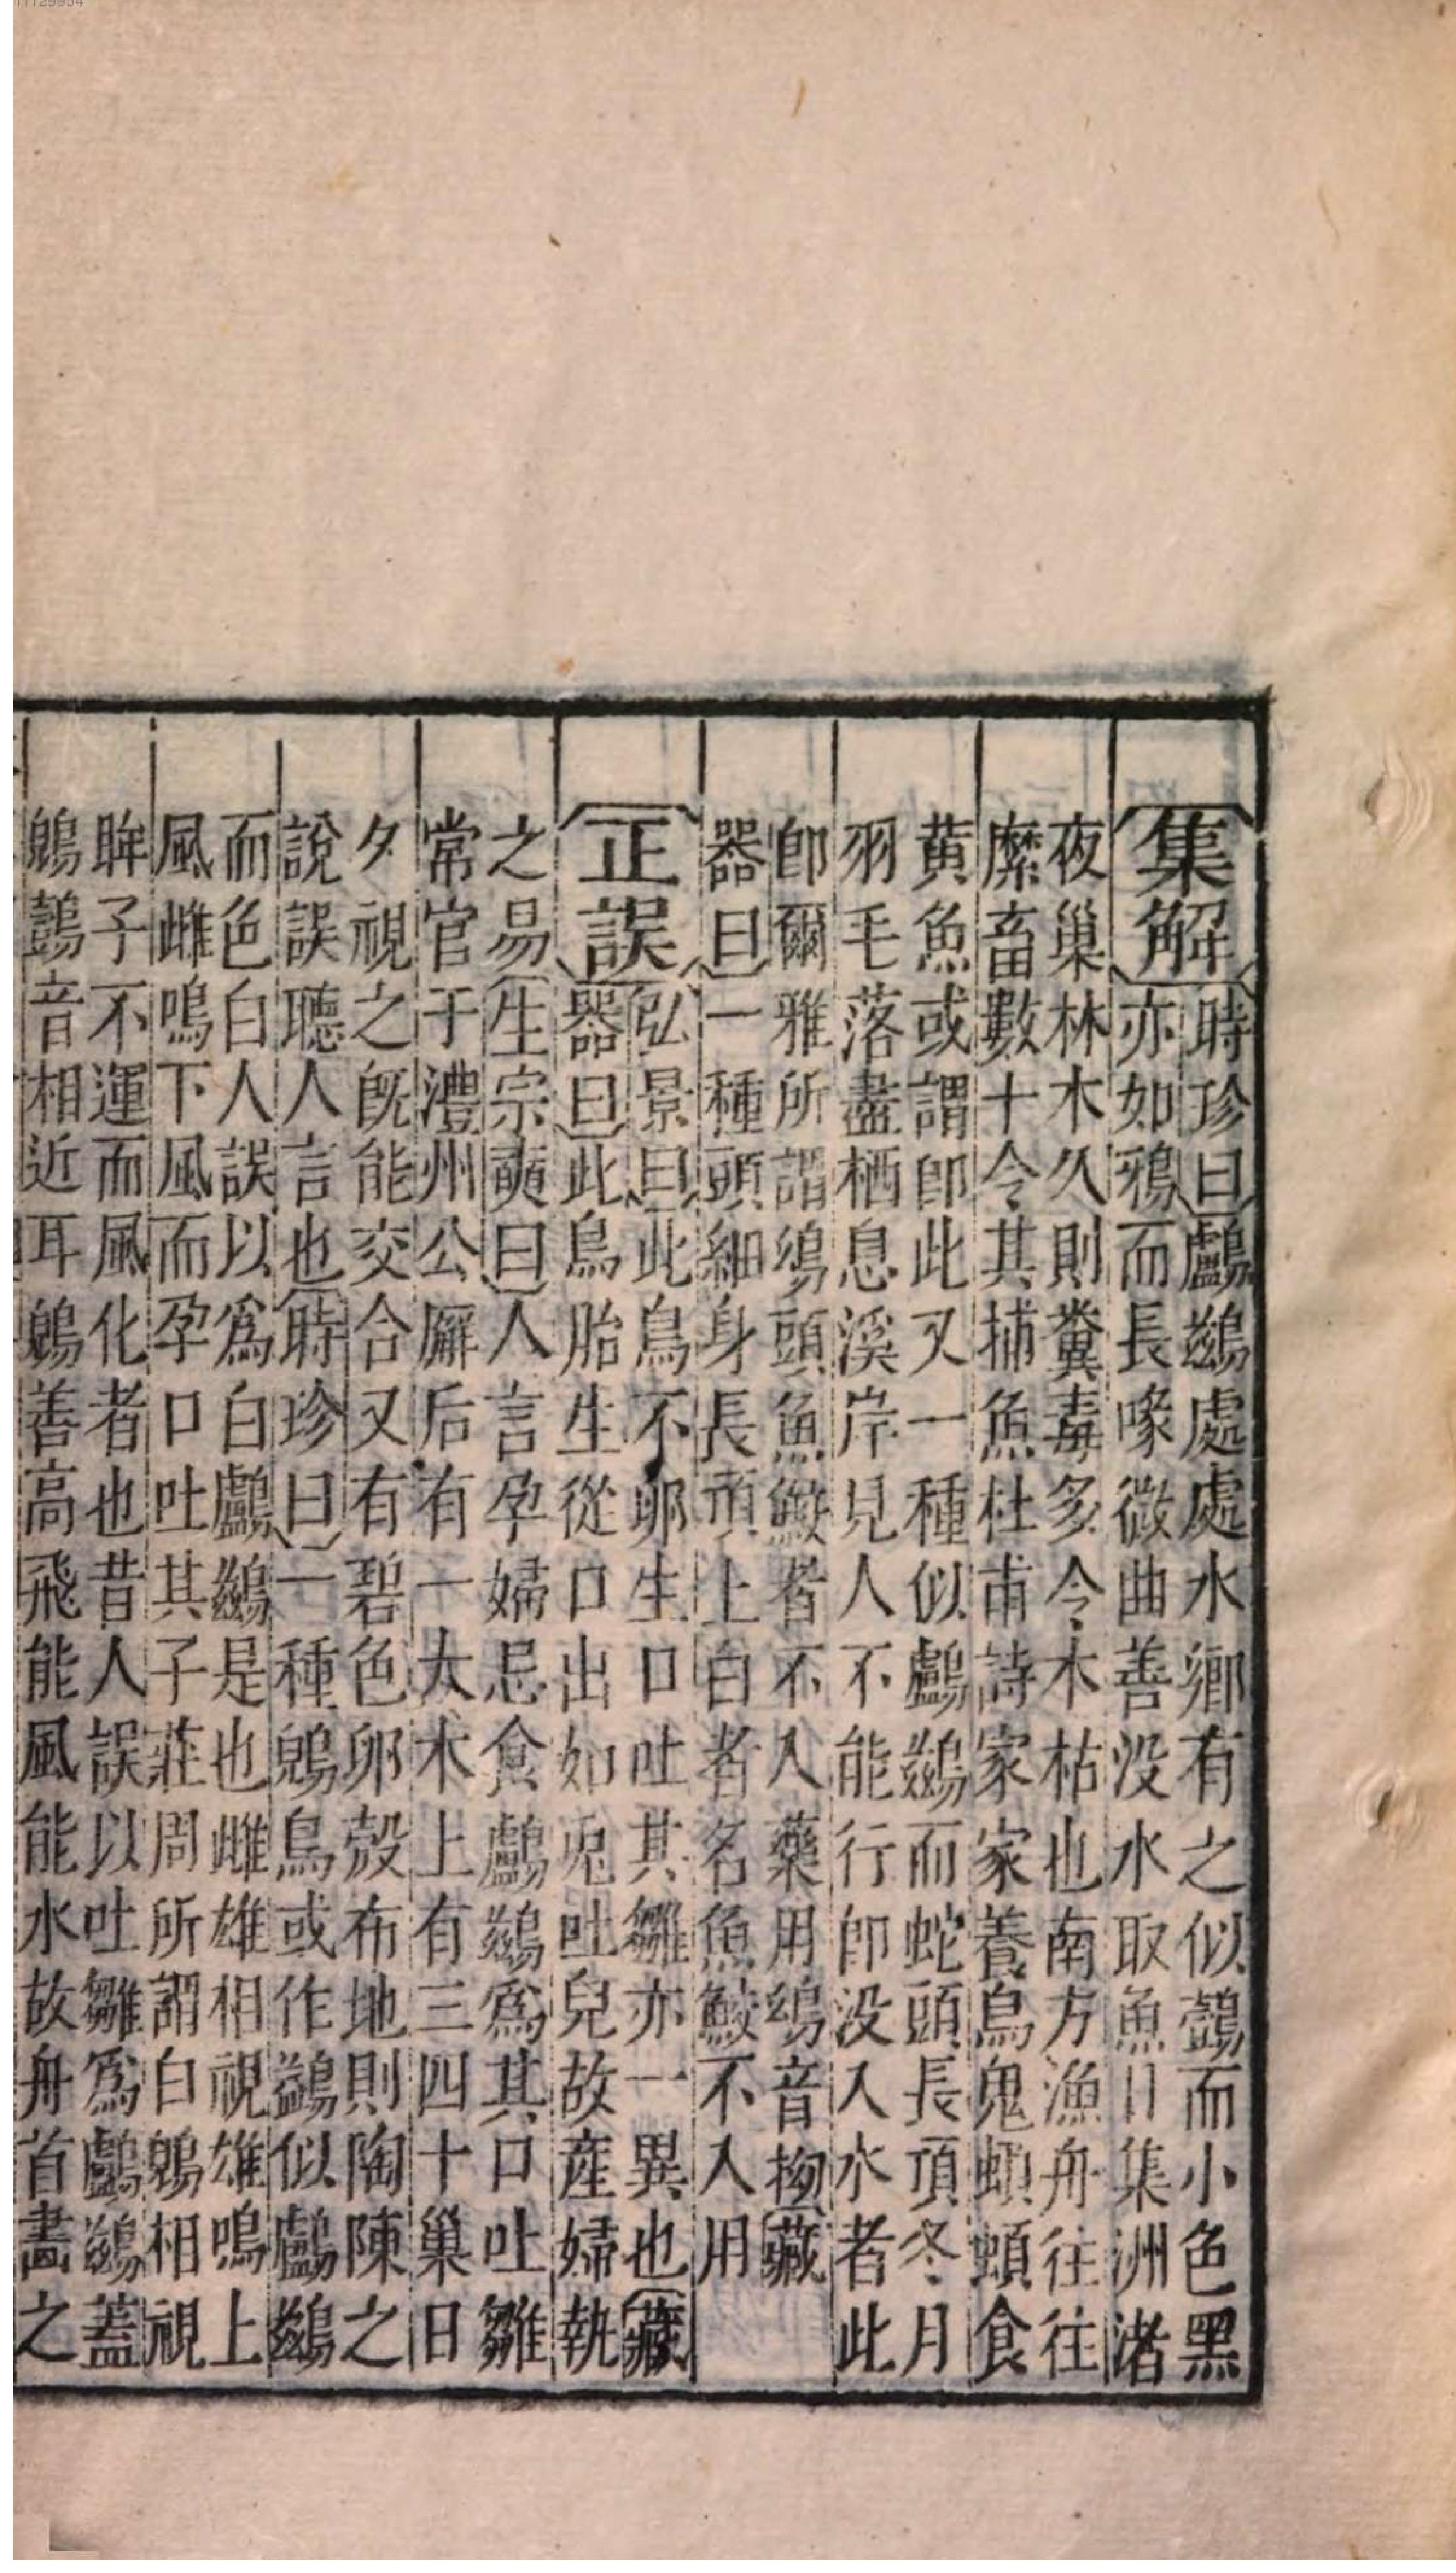 集解
時珍曰鸕鷀處處水鄉有之似鶂而小色黑
亦如鴉而長喙微曲善没水取魚日集洲渚
夜巢林木久則糞毒多令木枯也南方漁舟往往
縻畜數十令其捕魚杜甫詩家家養烏鬼頓頓食
黄魚或謂即此又一種似鸕鷀而蛇頭長項冬月
羽毛落盡栖息溪岸見人不能行即没入水者此
即爾雅所謂鴢頭魚鵁者不入藥用鴢音拗藏
器曰一種頭細身長項上白者名魚鮫不入用
正誤
弘景曰此鳥不卵生口吐其雛亦一異也藏
器曰此鳥胎生從口出如兎吐兒故産婦執
之易生宗奭曰人言孕婦忌食鸕鷀爲其口吐雛
常官于澧州公廨后有一大木上有三四十巢日
夕視之既能交合又有碧色卵殼布地則陶陳之
說誤聽人言也時珍曰一種鶂鳥或作鷁似鸕鷀
而色白人誤以爲白鸕鷀是也雌雄相視雄鳴上
風雌鳴下風而孕口吐其子莊周所謂白鶂相視
眸子不運而風化者也昔人誤以吐雛爲鸕鷀蓋
鶂鷧音相近耳鶂善高飛能風能水故舟首畫之